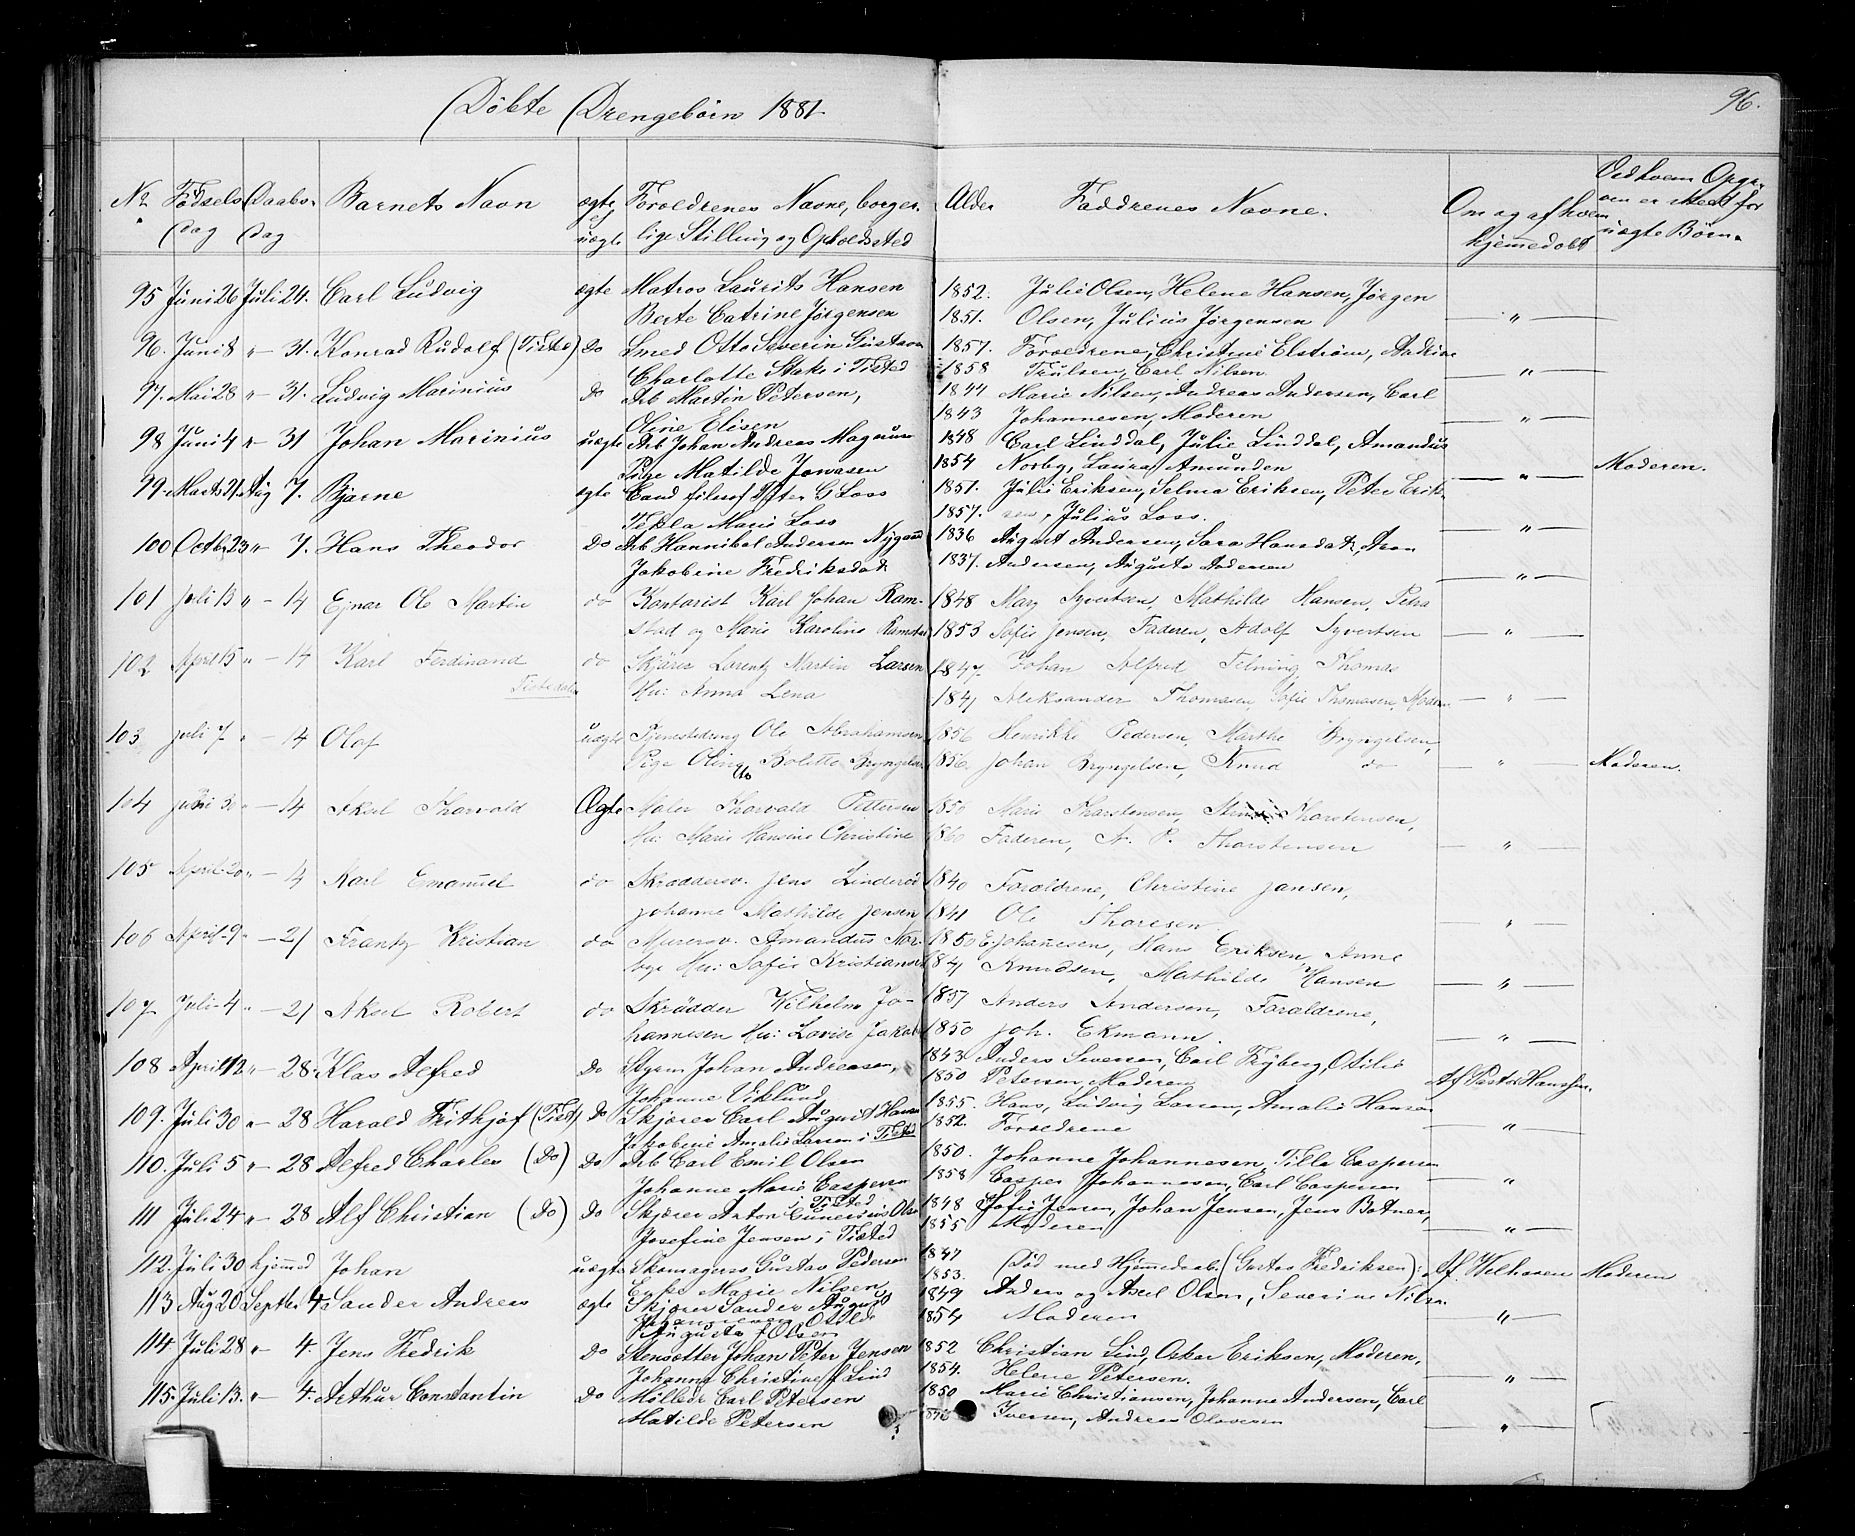 Döbte Drengebörn 1881.
96.
No Fødsels dag Daabs dag Barnets Navn ægte el uægte Foreldrenes Navne, borgerlige Stilling og Opholdsted Alder Faddrenes Navne. Om og af hvem hjemmedøbt uægte Børn.
95 Juni 26 Juli 24. Carl Ludvig ægte Matros Laurits Hansen 1852. Julie Olsen, Helene Hansen, Jørgen
Berte Catrine Jørgensen 1851. Olsen, Julius Jørgensen "
96. Juni 8 " - 31. Konrad Rudolf (Tistd) Do Smed Otto Severin Gustavsen 1857. Foreldrene, Christine Elstrøm, Andrine
Charlotte i Tisted 1858 Trulsen, Carl Nilsen "
97. Mai 28 " - 31. Ludvig Marinius Do Arb Martin Petersen, 1844 Marie Nilsen, Andreas Andersen, Carl
Oline Elisen 1843 Johannesen, Moderen "
98 Juni 4 " - 31 Johan Marinius uægte Arb Johan Andreas Magnus 1848 Carl Linddal, Julie Linddal, Amandus
Pige Matilde Jonasen 1854 Norby, Laura Amunden " Moderen.
99. Marts 21. Aug 7. Bjarne ægte Cand filosof Peter G Loss 1851. Julie Eriksen, Selma Eriksen, Peter Erik-
Tekla Marie Loss 1857. sen, Julius Loss. "
100 Octbr 23 " 7. Hans Theodor Do Arb Hannibal Andersen Nygaard 1836 August Andersen, Sara Hansdat, Aron
Jakobine Fredriksdat 1837. Andersen, Augusta Andersen "
101 Juli 13 " - 14 Ejnar Ole Martin do Kontorist Karl Johan Ram- 1848 Mary Syvertsen, Mathilde Hansen, Petra
stad og Marie Karoline Ramstad 1853 Sofie Jensen, Faderen, Adolf Syvertsen "
102 April 15 " - 14 Karl Ferdinand do Skjærer Lorentz Martin Larsen 1847 Johan Alfred Thomas
Tistedalen Hu: Anna Lena 1841 Aleksander Thomasen, Sofie Thomasen, Modern "
103 Juli 7 " - 14 Olaf uægte Tjenestedreng Ole Abrahamsen 1856 Henrikke Pedersen, Marthe Bryngelsen,
Pige Oline Bolette Bryngelsen 1856 Johan Bryngelsen, Knud do " Moderen.
104 Juni 30 " - 14 Aksel Thorvald Ægte Maler Thorvald Pettersen 1850 Marie Thorstensen, Thorstensen,
Hu: Marie Hansine Christine 1860 Faderen, A. P. Thorstensen "
105 April 20 " - 4 Karl Emanuel do Skrædersv. Jens Linderød 1840 Foraldrene, Christine Jansen,
Johanne Mathilde Jensen 1841 Ole Thoresen "
106 April 9 " - 21 Frantz Kristian do Murersv. Amandus Nor- 1850 E Johannesen, Hans Eriksen, Anne
bye Hu: Sofie Kristiansen 1841 Knudsen, Mathilde Hansen "
107 Juli 4 " - 21 Aksel Robert do Skrædder Wilhelm Jo- 1857 Anders Andersen, Foraldrene,
hannesen Hu: Lovise Jakob 1850 Joh. Ekmann. "
108 April 12 " - 28 Klas Alfred Do Styrm Johan Andreasen, 1843 Anders Seversen, Carl Fryberg, Otilie
Johanne Viklund 1850 Petersen, Moderen Af Pastor
109. Juli 30 " - 28 Harald Frithjof (Tist) Do Skjærer Carl August Hansen 1855. Hans, Ludvig Larsen, Amalie Hansen
Jakobine Amalie Larsen i Tisted 1852. Foreldrene "
110. Juli 5 " - 28 Alfred Charles (Do) Do Arb Carl Emil Olsen 1850. Johanne Johannesen, Tilla Caspersen
Johanne Marie Caspersen i Tisted 1858 Casper Johannesen, Carl Caspersen "
111 Juli 24 " - 28 Alf Christian (Do) Do Skjærer Anton Gunerius Olsen 1848 Sofie Jensen, Johan Jensen, Jens Botner,
Josefine Jensen i Tisted 1855 Moderen "
112. Juli 30 hjemmed Johan uægte Skomagers Gustav Pedersen 1847 (Død med Hjemmedaab (Gustav Fredriksen) Af Welhaven Moderen
Marie Nilsen 1853.
113 Aug 20 Septbr 4 Sander Andreas ægte Skjærer Sander August 1849 Anders og Axel Olsen, Severine Nilsen
Augusta f Olsen 1854 Moderen "
114. Juli 28 " 4. Jens Fredrik Do Stensætter Johan Peter Jensen 1852 Christian Lind, Oskar Eriksen, Moderen,
Johanna Christine f Lind 1854. Helene Petersen. "
115. Juli 13. " 4. Arthur Constantin Do Møller Carl Petersen 1850 Marie Christiansen, Johanne Andersen, Carl
Matilde Petersen Iversen, Andreas Olavesen "